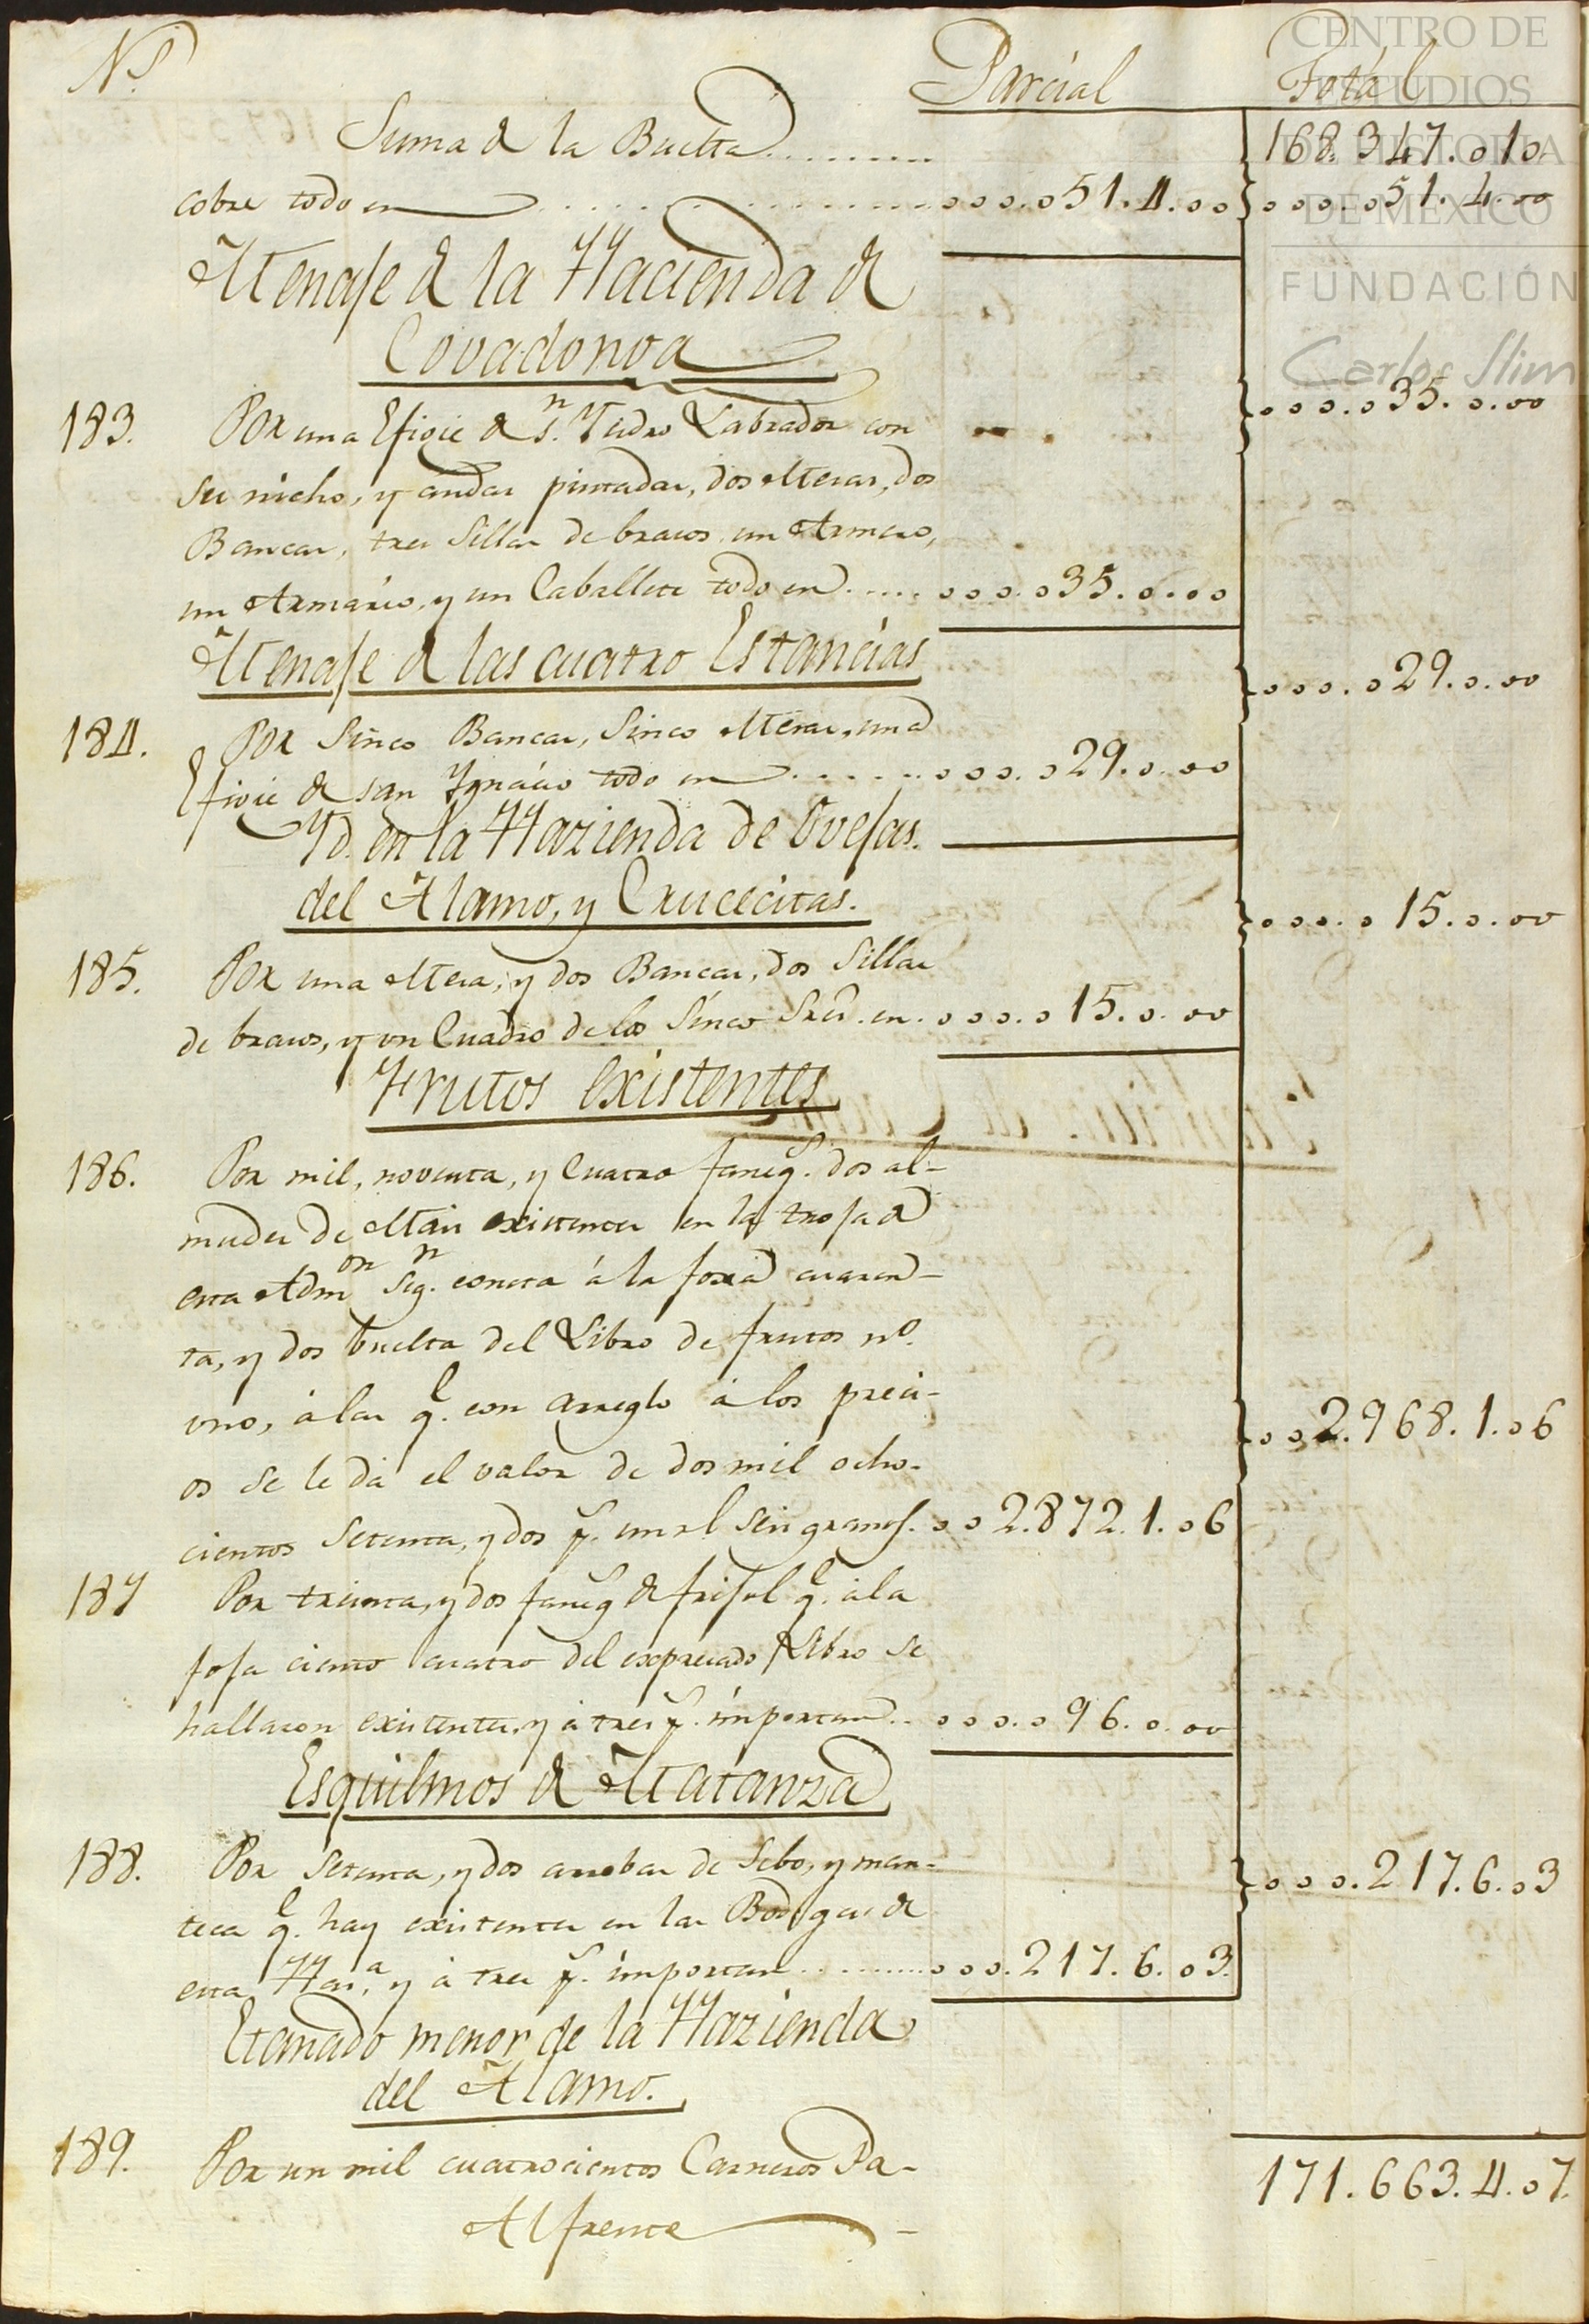 N.s Parcial Total
Suma de la Buelta.......... 168.347.010.
cobre todo en .................. 000.051.4.00 } 000.051.4.00
Menaje de la Hacienda de
Covadonga
183. Por una Efigie de S.n Ysidro Labrador con } 000.035.0.00
su nicho, y andas pintadas, dos Mesas, dos
Bancas, tres Sillas de brasos, un Armero,
un Armario, y un Caballete todo en ..... 000.035.0.00
Menaje de las cuatro Estancias } 000.029.0.00
184. Por Sinco Bancas, Sinco Mesas, una
Efigie de san Ygnácio todo en ....... 000.029.0.00
Yd. en la Hazienda de Ovejas.
del Alamo, y Crucecitas. } 000.015.0.00
185. Por una Mesa, y dos Bancas, dos Sillas
de brasos, y un Cuadro de los Sinco Sres. en. 000.015.0.00
Frutos existentes
186. Por mil, noventa, y Cuatro faneg.s dos al-
mudes de Mais existentes en la troja de
esta Adm.on seg.n consta á la foxa cuaren-
ta, y dos buelta del Libro de frutos nº.
uno, á las q.e con arreglo á los preci- } 002.968.1.06
os se le dá el valor de dos mil ocho-
cientos Setenta, y dos p.s un rl seis granos. 002.872.1.06
187 Por treinta, y dos faneg.s de frijol q.e á la
foja ciento cuatro del expresado Libro se
hallaron existentes, y á tres p.s importan.. 000.096.0.00
Esquilmos de Matanza
188. Por Setenta, y dos arrobas de Sebo, y man- } 000.217.6.03
teca q.e hay existentes en las Bodegas de
esta Haz.a y á tres p.s importan .......... 000.217.6.03.
Ganado menor de la Hazienda
del Alamo.
189. Por un mil cuatrocientos Carneros Pa- 171.663.4.07.
Al frente
CENTRO DE
ESTUDIOS
DE HISTORIA
DE MÉXICO
FUNDACIÓN
Carlos Slim